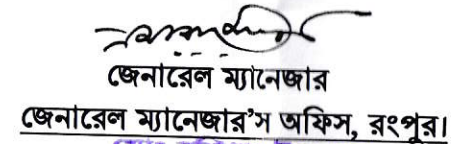 জেনারেল ম্যানেজার
জেনারেল ম্যানেজার’স অফিস, রংপুর।